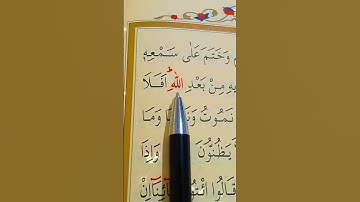 وَخَتَمَ عَلٰى سَمْعِهٖ
مِنْ بَعْدِ اللّٰهِ ؕ اَفَلَا
نَمُوْتُ وَمَا
يَظُنُّوْنَ وَاِذَا
قَالُوا